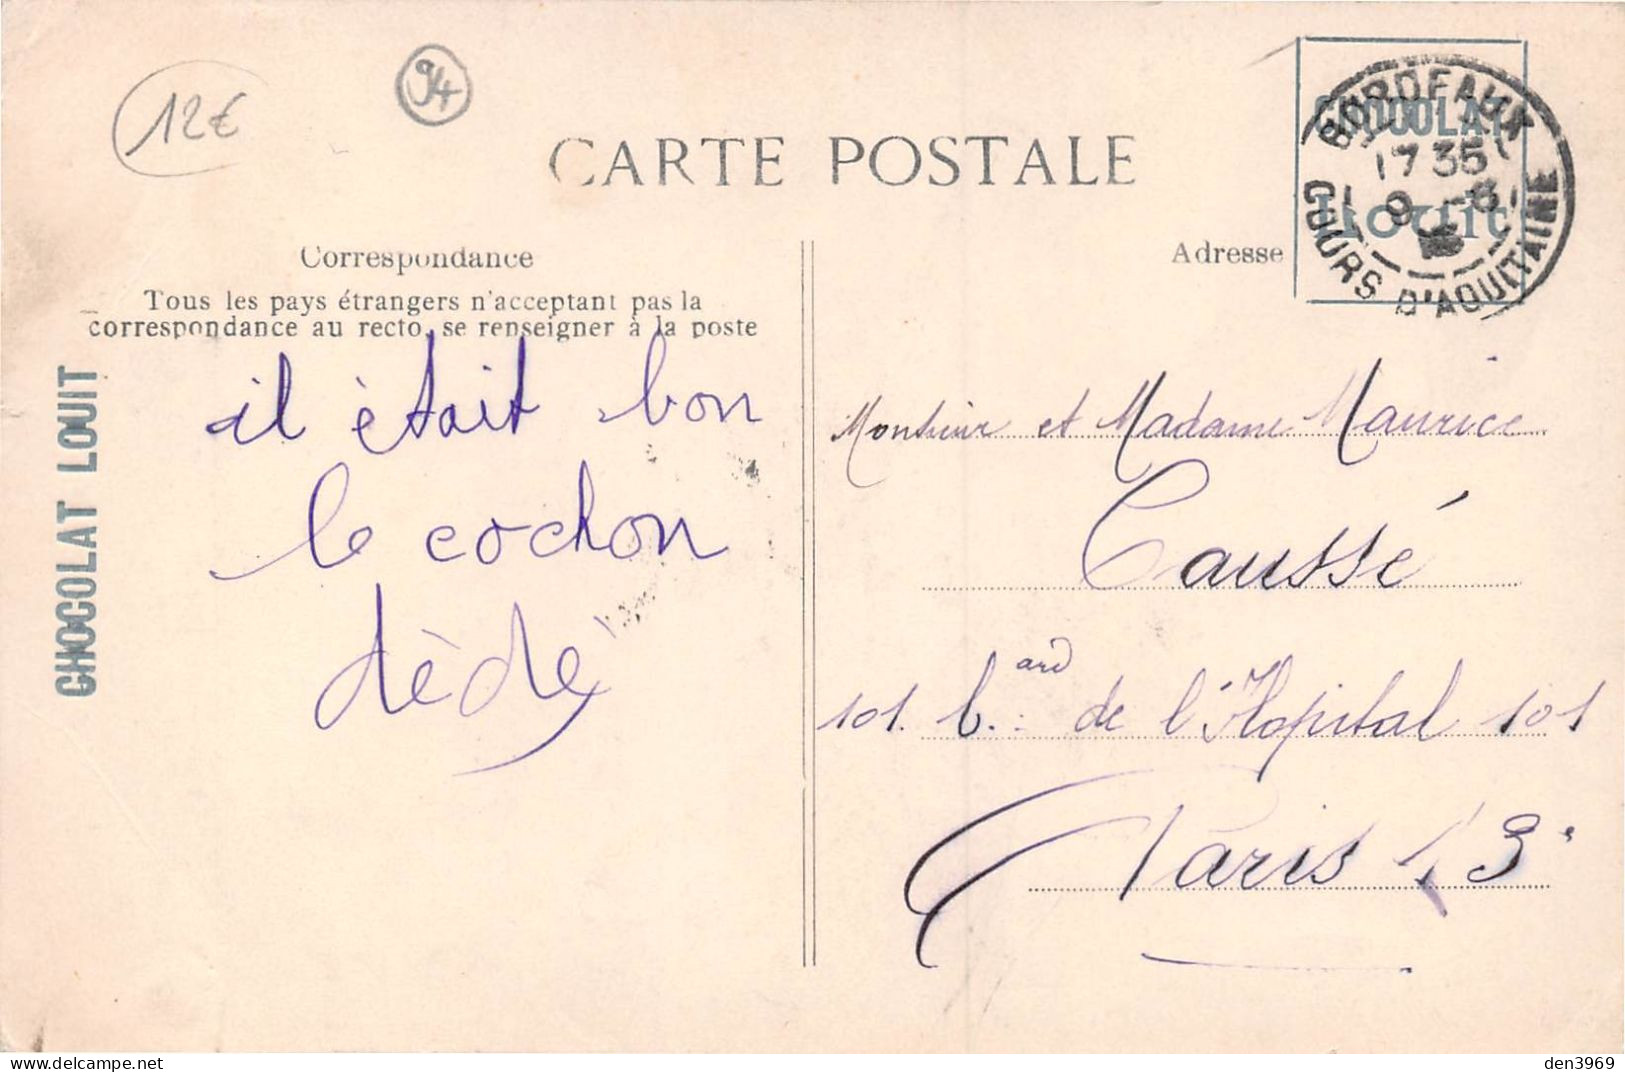 12€
94
CARTE POSTALE
CHOCOLAT
Louit
BORDEAUX
17 35
9 -8
COURS D'AQUITAINE
Correspondance
Adresse
Tous les pays étrangers n'acceptant pas la
correspondance au recto, se renseigner à la poste
CHOCOLAT LOUIT
il ètait bon
le cochon
dèdè
Monsieur et Madame Maurice
Caussé
101. b.ard de l'Hopital 101
Paris 13e
den3969